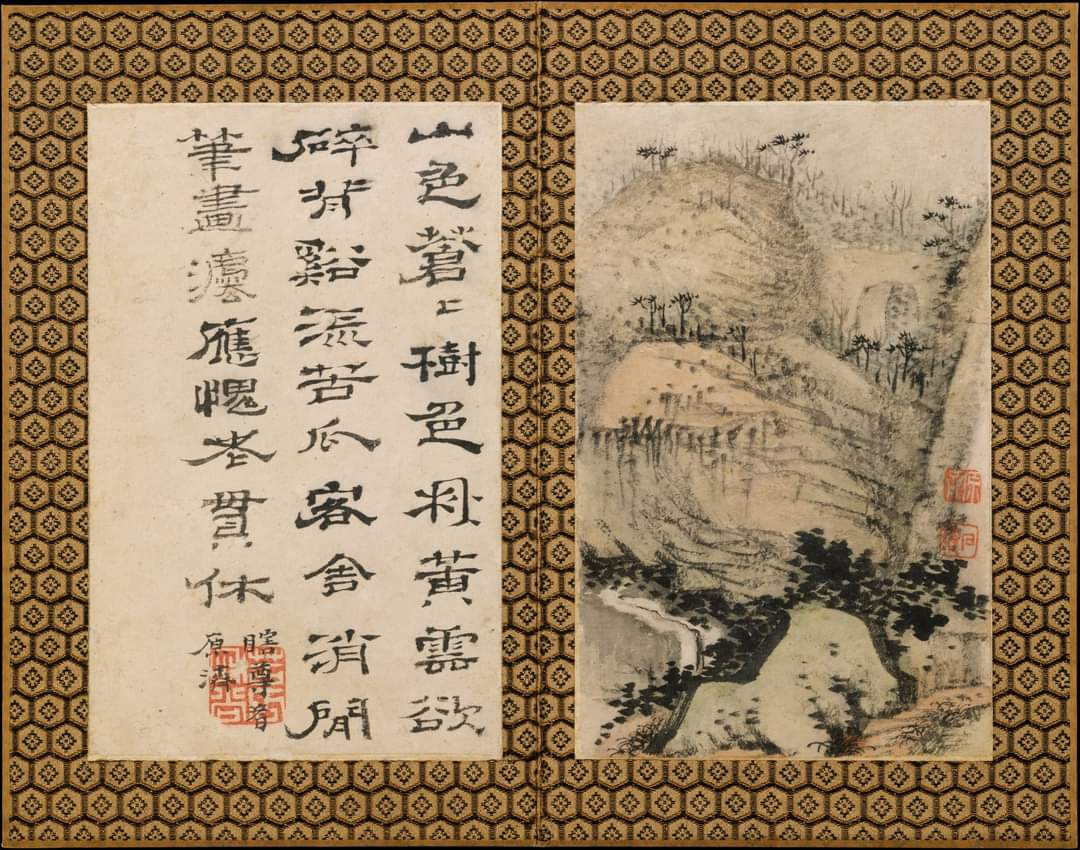 山色蒼〻樹色秋黃雲欲
碎背谿流苦瓜客舍消閒
筆畫灋應愧老貫休
瞎尊者
原濟